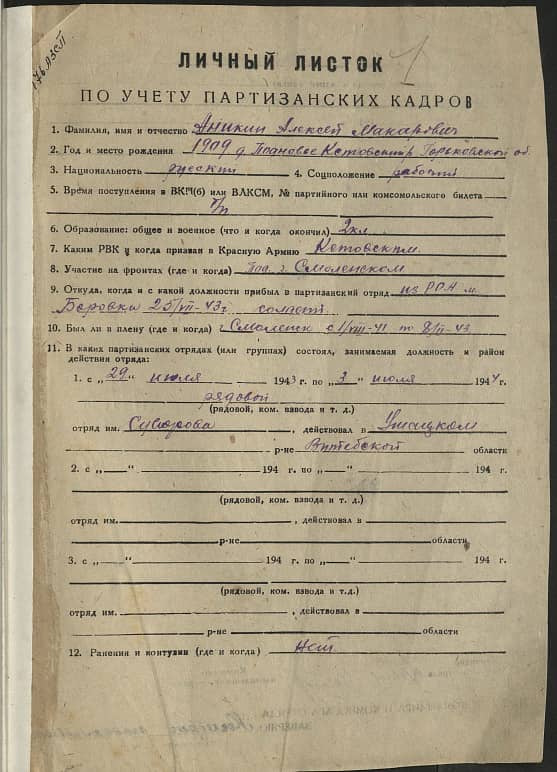 ЛИЧНЫЙ ЛИСТОК
ПО УЧЕТУ ПАРТИЗАНСКИХ КАДРОВ
1. Фамилия, имя и отчество Аникин Алексей Макарович
2. Год и место рождения 1909 д Кстовский р Горьковской об
3. Национальность русский 4. Соцположение рабочий
5. Время поступления в ВКП(б) или ВЛКСМ, № партийного или комсомольского билета
б/п
6. Образование: общее и военное (что и когда окончил) 2 кл.
7. Каким РВК и когда призван в Красную Армию Кстовским
8. Участие на фронтах (где и когда) Под г. Смоленском
9. Откуда, когда и с какой должности прибыл в партизанский отряд из РОА м.
Боровка 25/VII-43г. солдат.
10. Был ли в плену (где и когда) г Смоленск с 1/VIII-41 по 8/II-43
11. В каких партизанских отрядах (или группах) состоял, занимаемая должность и район
действия отряда:
1. с „29“ июля 1943 г. по „3“ июля 1944 г.
рядовой
(рядовой, ком. взвода и т. д.)
отряд им. Суворова , действовал в Ушацком
р-не Витебской области
2. с „ “ 194 г. по „ “ 194 г.
(рядовой, ком. взвода и т. д.)
отряд им. , действовал в
р-не области
3. с „ “ 194 г. по „ “ 194 г.
(рядовой, ком. взвода и т.д.)
отряд им. , действовал в
р-не области
12. Ранения и контузии (где и когда) нет